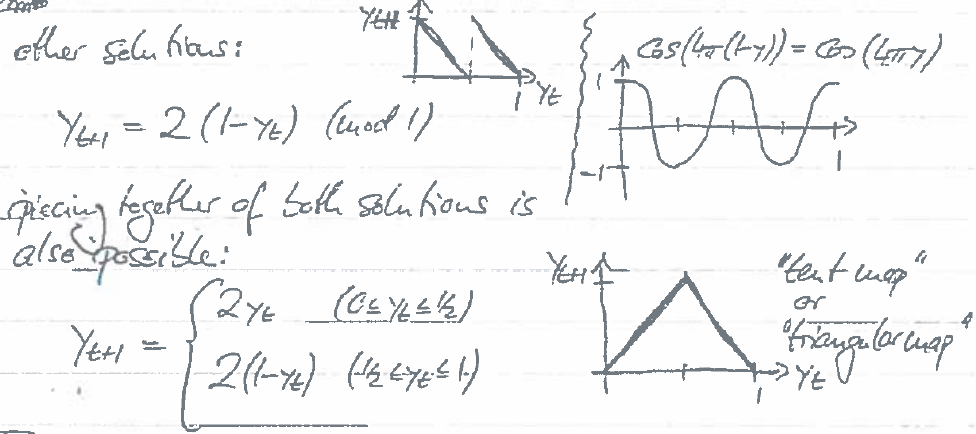 other solutions:
Yt+1
1 Yt
cos(4π(1-y)) = cos(4πy)
1
-1
1
Yt+1 = 2(1-Yt) (mod 1)
piecing together of both solutions is
also possible:
Yt+1 = { 2Yt (0≤Yt≤½)
2(1-Yt) (½≤Yt≤1)
Yt+1
1 Yt
"tent map"
or
"triangular map"